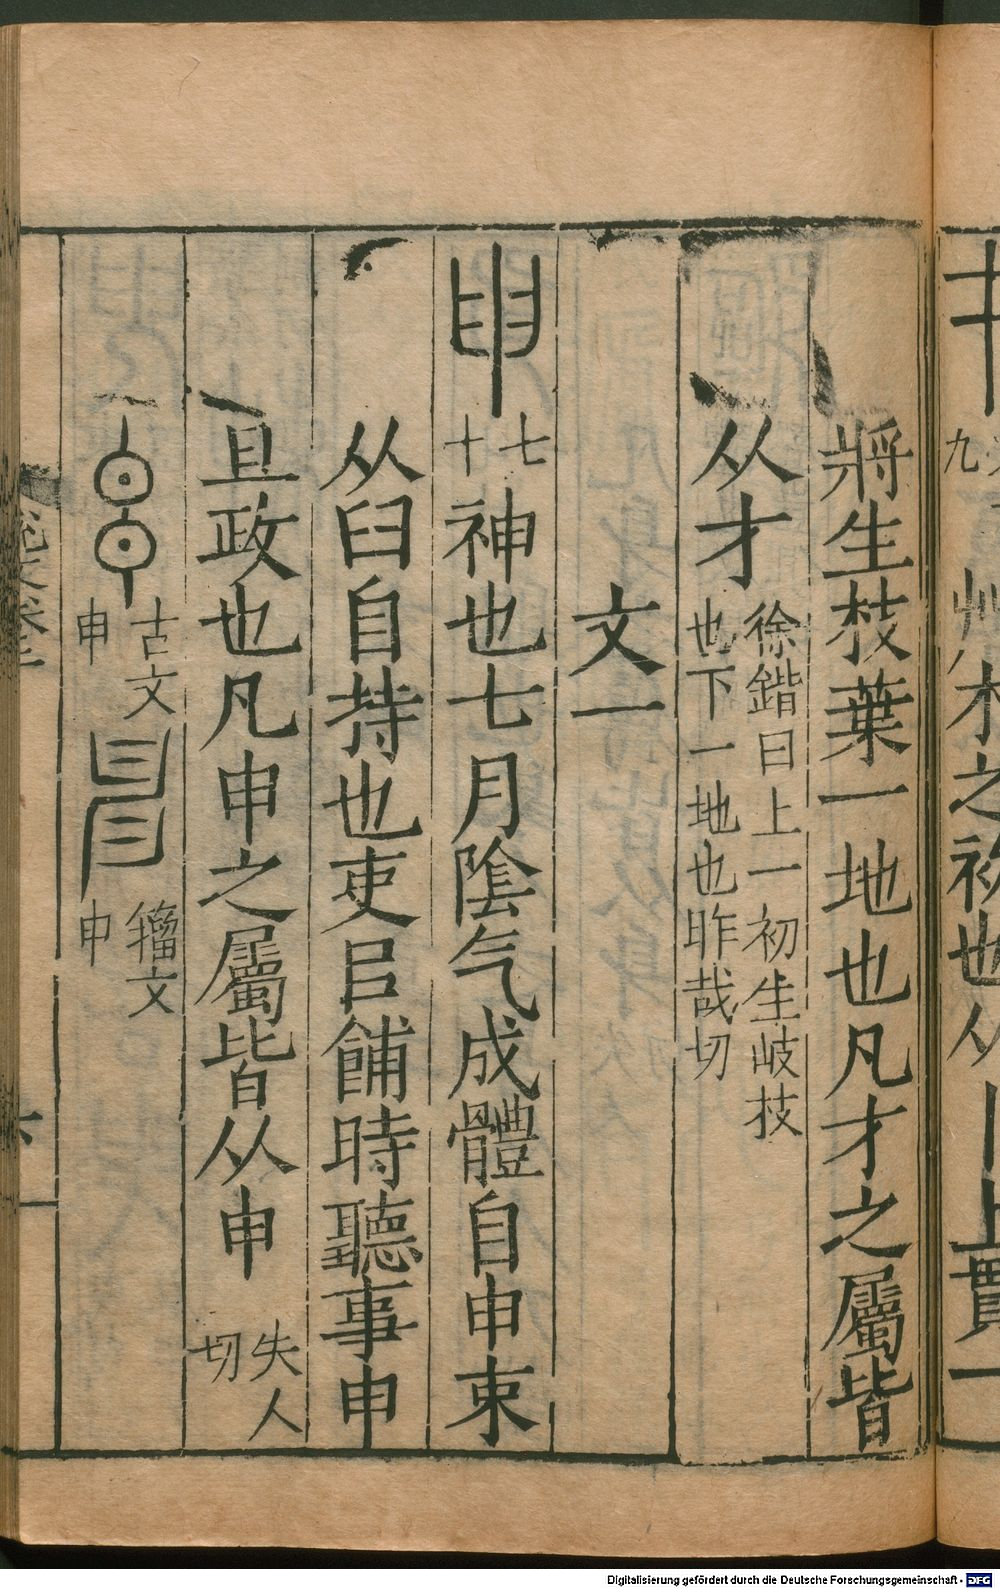 九
艸木之初也从丨上貫一
將生枝葉一地也凡才之屬皆
从才
徐鍇曰上一初生岐枝
也下一地也昨哉切
文一
申
七
十
神也七月陰气成體自申束
从𦥑自持也吏㠯餔時聽事申
旦政也凡申之屬皆从申
失人
切
古文
申
籒文
申
Digitalisierung gefördert durch die Deutsche Forschungsgemeinschaft - DFG